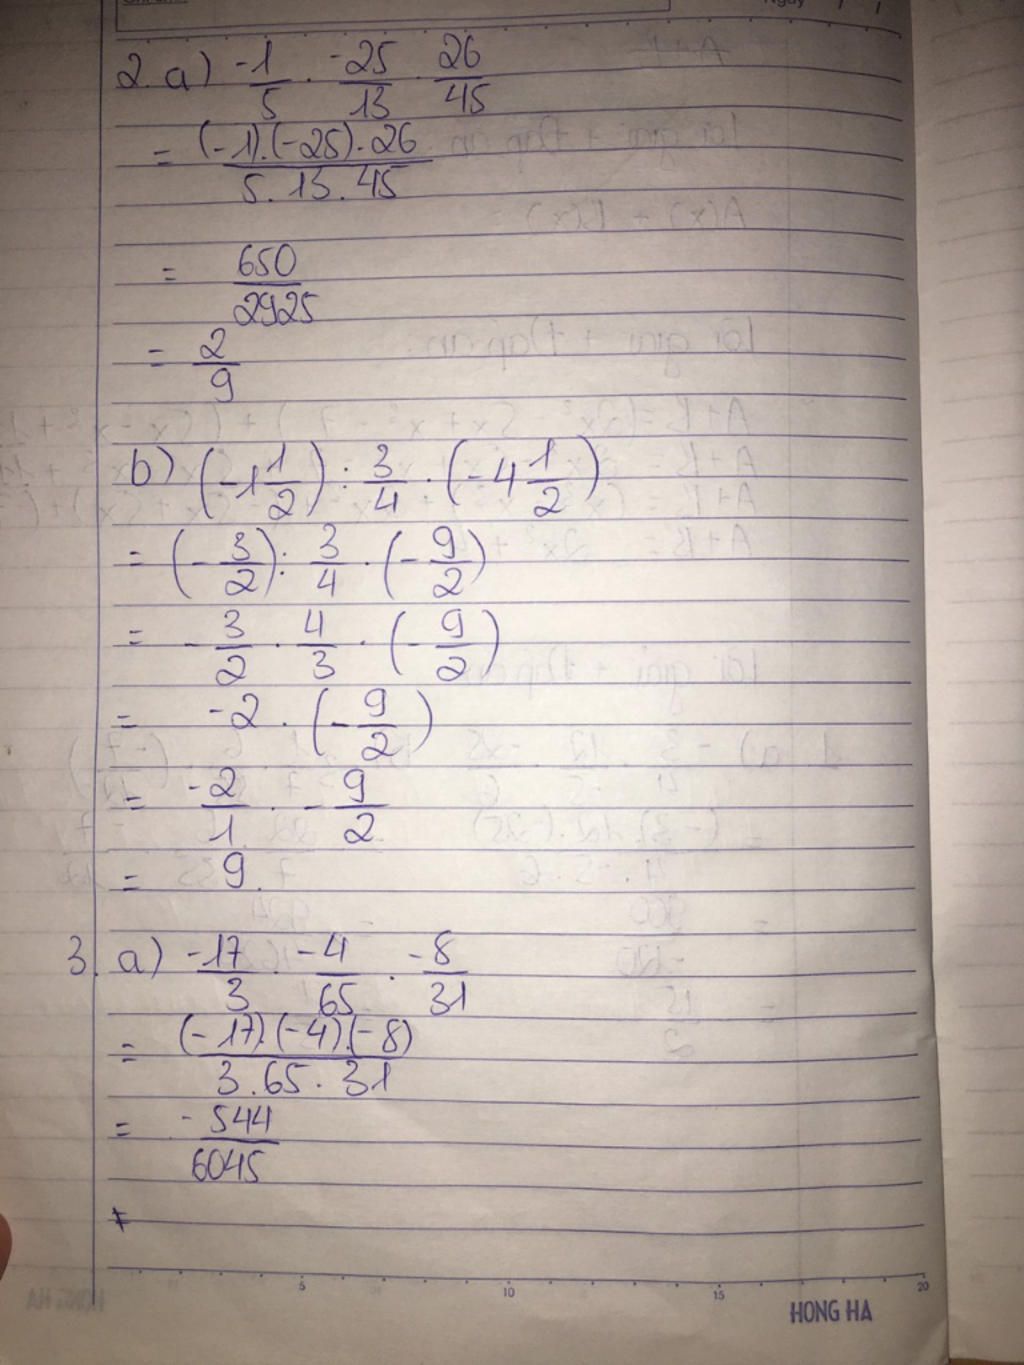 Ngày / /
2. a) -1/5 . -25/13 . 26/45
= (-1).(-25).26 / 5.13.45
= 650/2925
= 2/9
b) (-1 1/2) : 3/4 . (-4 1/2)
= (-3/2) : 3/4 . (-9/2)
= -3/2 . 4/3 . (-9/2)
= -2 . (-9/2)
= -2/1 . -9/2
= 9.
3. a) -17/3 . -4/65 . -8/31
= (-17).(-4).(-8) / 3.65.31
= -544/6045
5 10 15 20
HONG HA